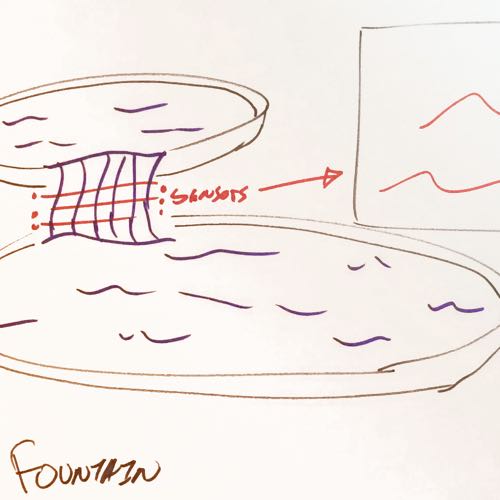 SENSORS
FOUNTAIN